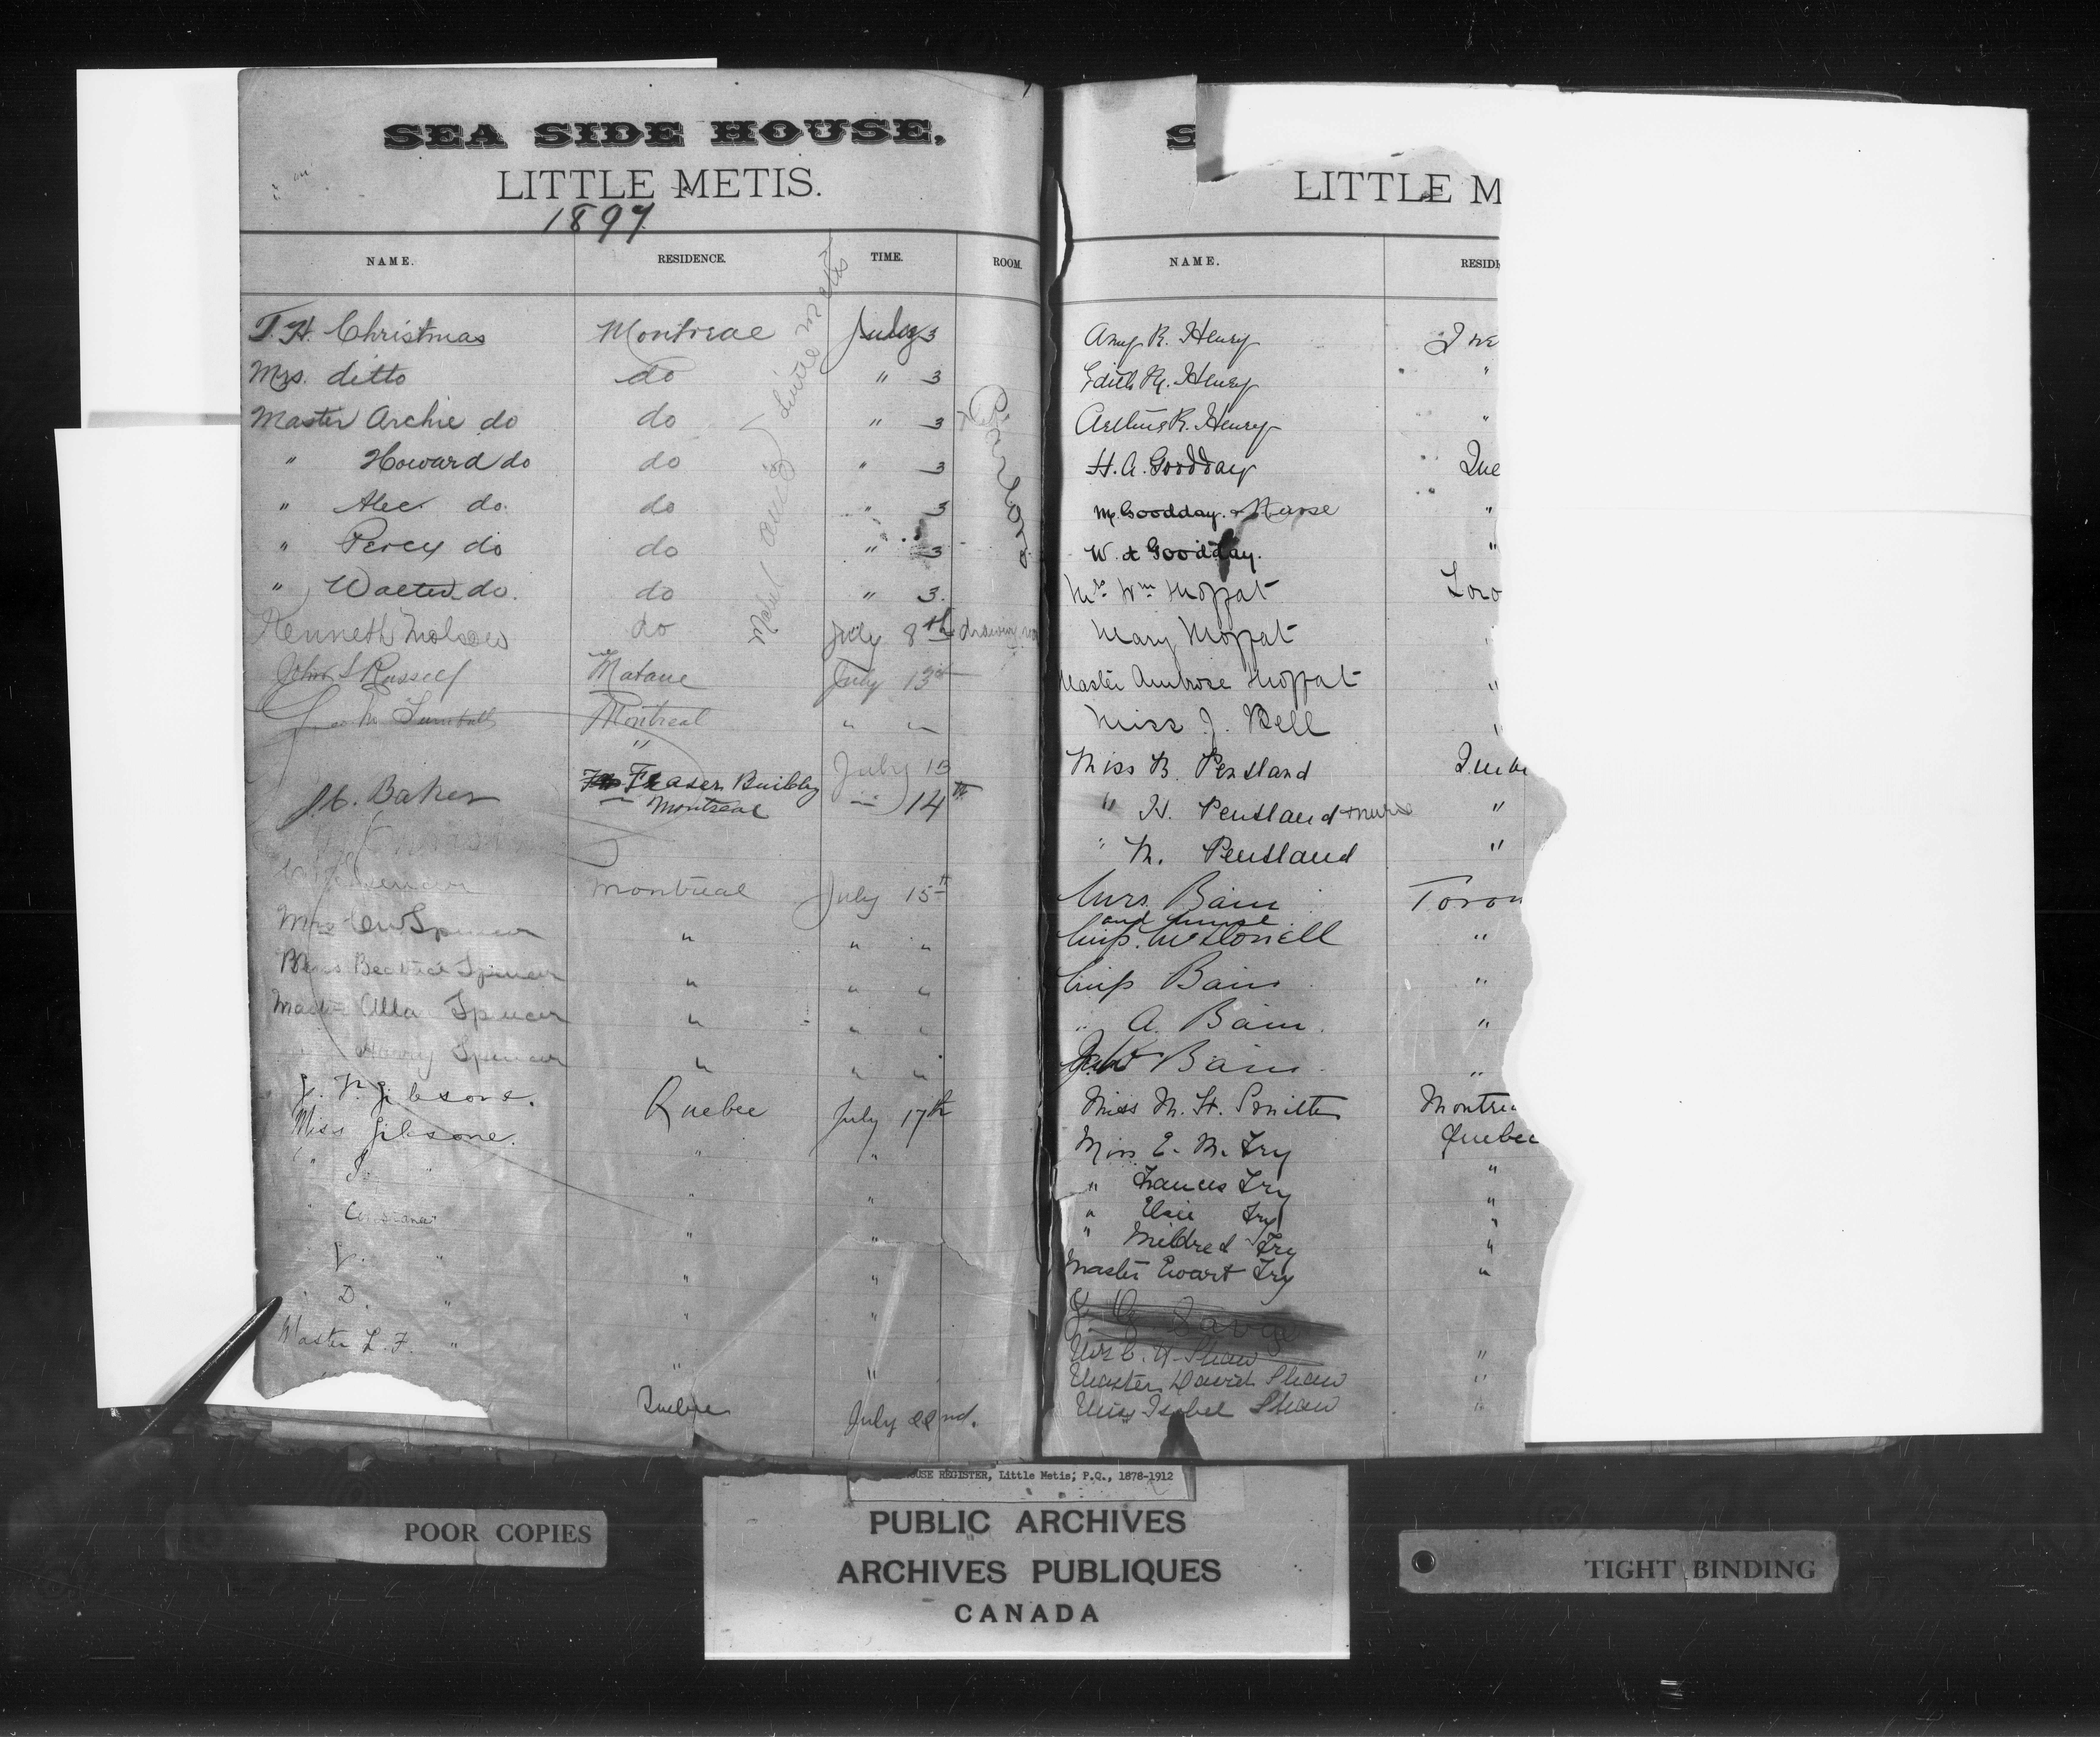 SEA SIDE HOUSE,
LITTLE METIS.
1897
NAME. RESIDENCE. TIME. ROOM.
T. H. Christmas Montreal July 3
Mrs. ditto do " 3
Master Archie do do " 3
" Howard do do " 3
" Alec do. do " 3
" Percy do do " 3
" Walter do. do " 3.
Parlors
Little Metis
Kenneth Molson do July 8th drawing
John S Russell Matane July 13th
Montreal " "
" July 13
J. C. Baker Fraser Building
Montreal " 14th
Spencer Montreal July 15th
Mrs Spencer " " "
Miss Beatrice Spencer " " "
Master Spencer " " "
Harry Spencer " " "
J. Gibsone. Quebec July 17th
Miss Gibsone. " "
" "
J. " " "
D. " " "
Master L. F. " " "
Quebec July 22nd.
S
LITTLE M
NAME. RESID
Amy R. Henry
Edith M. Henry "
Arthur R. Henry "
H. A. Goodday Que
M. Goodday & Nurse "
W. & Goodday. "
Mrs. Wm Moppat Toro
Mary Moppat "
Master Ambrose Moppat "
Miss J. Bell "
Miss B. Pentland Quebe
" H. Pentland & nurse "
" M. Pentland "
Mrs. Bain Toron
and nurse
Miss. McDonell "
Miss Bain "
" A. Bain. "
Bain "
Miss M. H. Smith Montrea
Miss E. M. Fry Quebec
" Frances Fry "
" Elsie Fry "
" Mildred Fry "
Master Ewart Fry "
Savage
Mrs C. H. Shaw "
Master David Shaw "
Miss Isobel Shaw "
OUSE REGISTER, Little Metis; P.Q., 1878-1912
PUBLIC ARCHIVES
ARCHIVES PUBLIQUES
CANADA
POOR COPIES
TIGHT BINDING